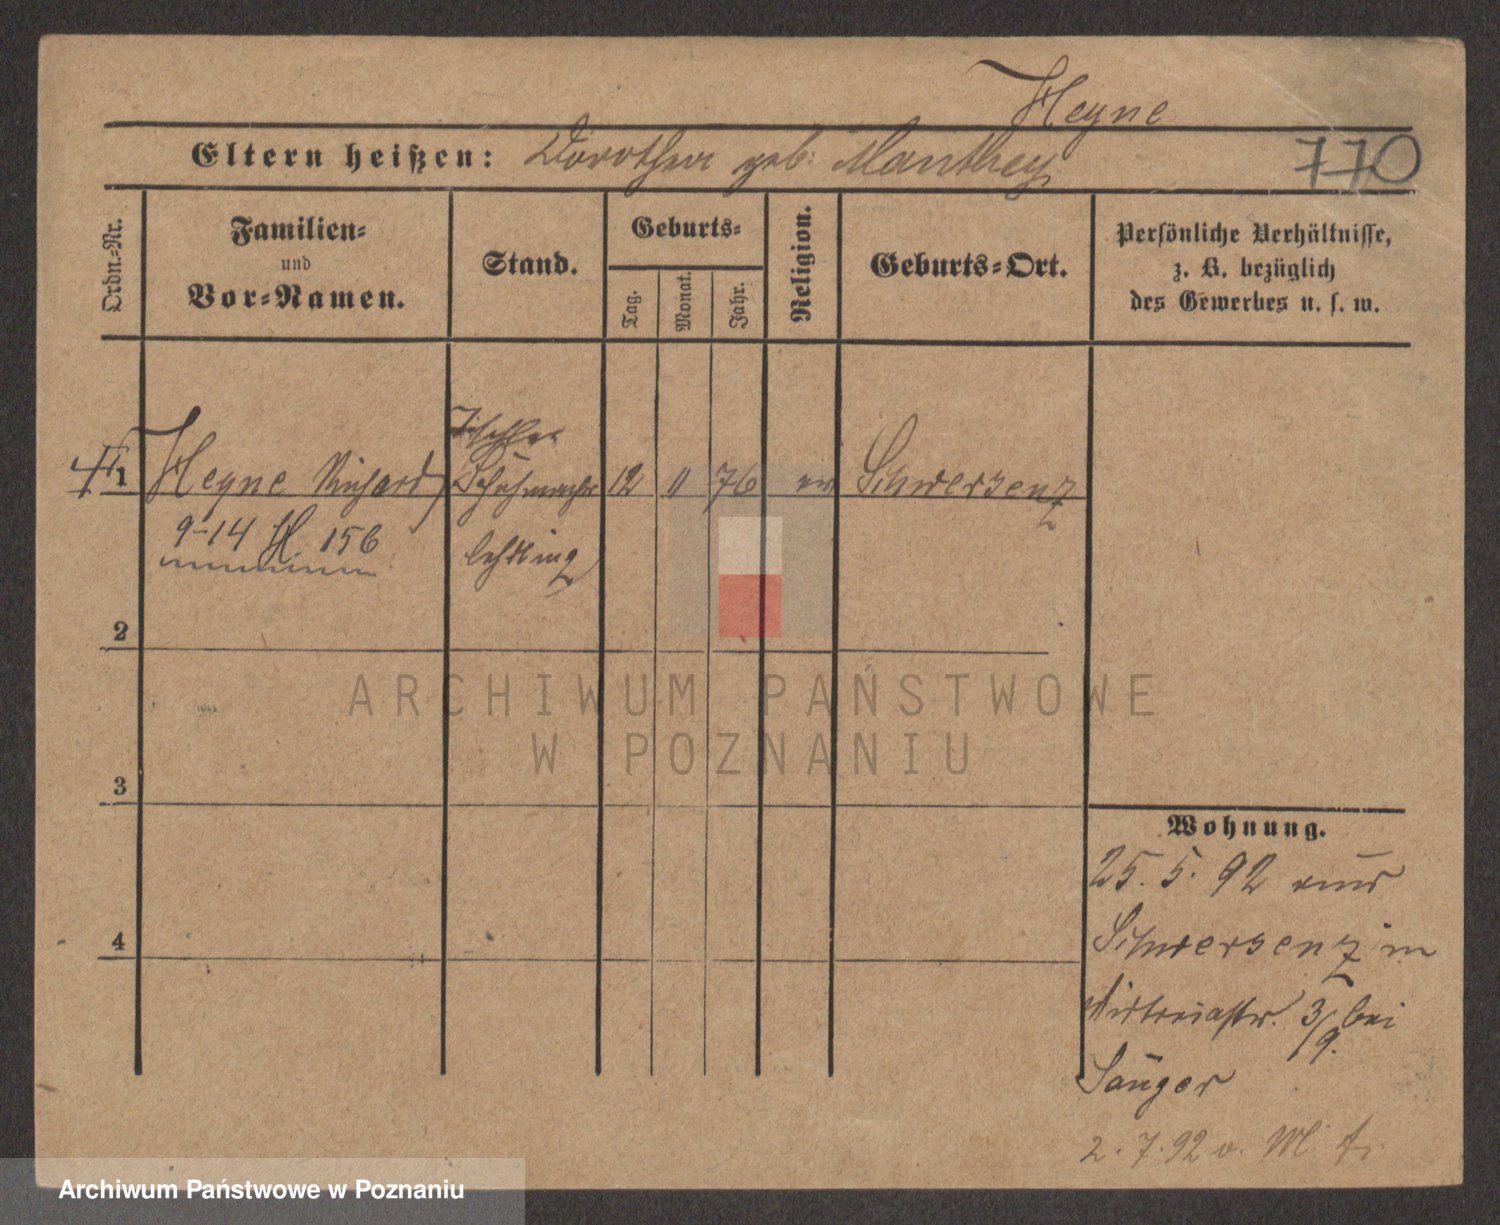 Heyne
Eltern heißen: Dorothea geb. Manthey
770
Ordn.-Nr.
Familien-
und
Vor-Namen.
Stand.
Geburts-
Tag.
Monat.
Jahr.
Religion.
Geburts-Ort.
Persönliche Verhältnisse,
z. B. bezüglich
des Gewerbes u. s. w.
Tischler
1 Heyne Richard Schuhmacher 12 11 76 ev Schwersenz
9-14 H. 156
lehrling
2
ARCHIWUM PAŃSTWOWE
W POZNANIU
3
Wohnung.
25. 5. 92 aus
4
Schwersenz in
3/9. bei
Sänger
2. 7. 92 v.
Archiwum Państwowe w Poznaniu